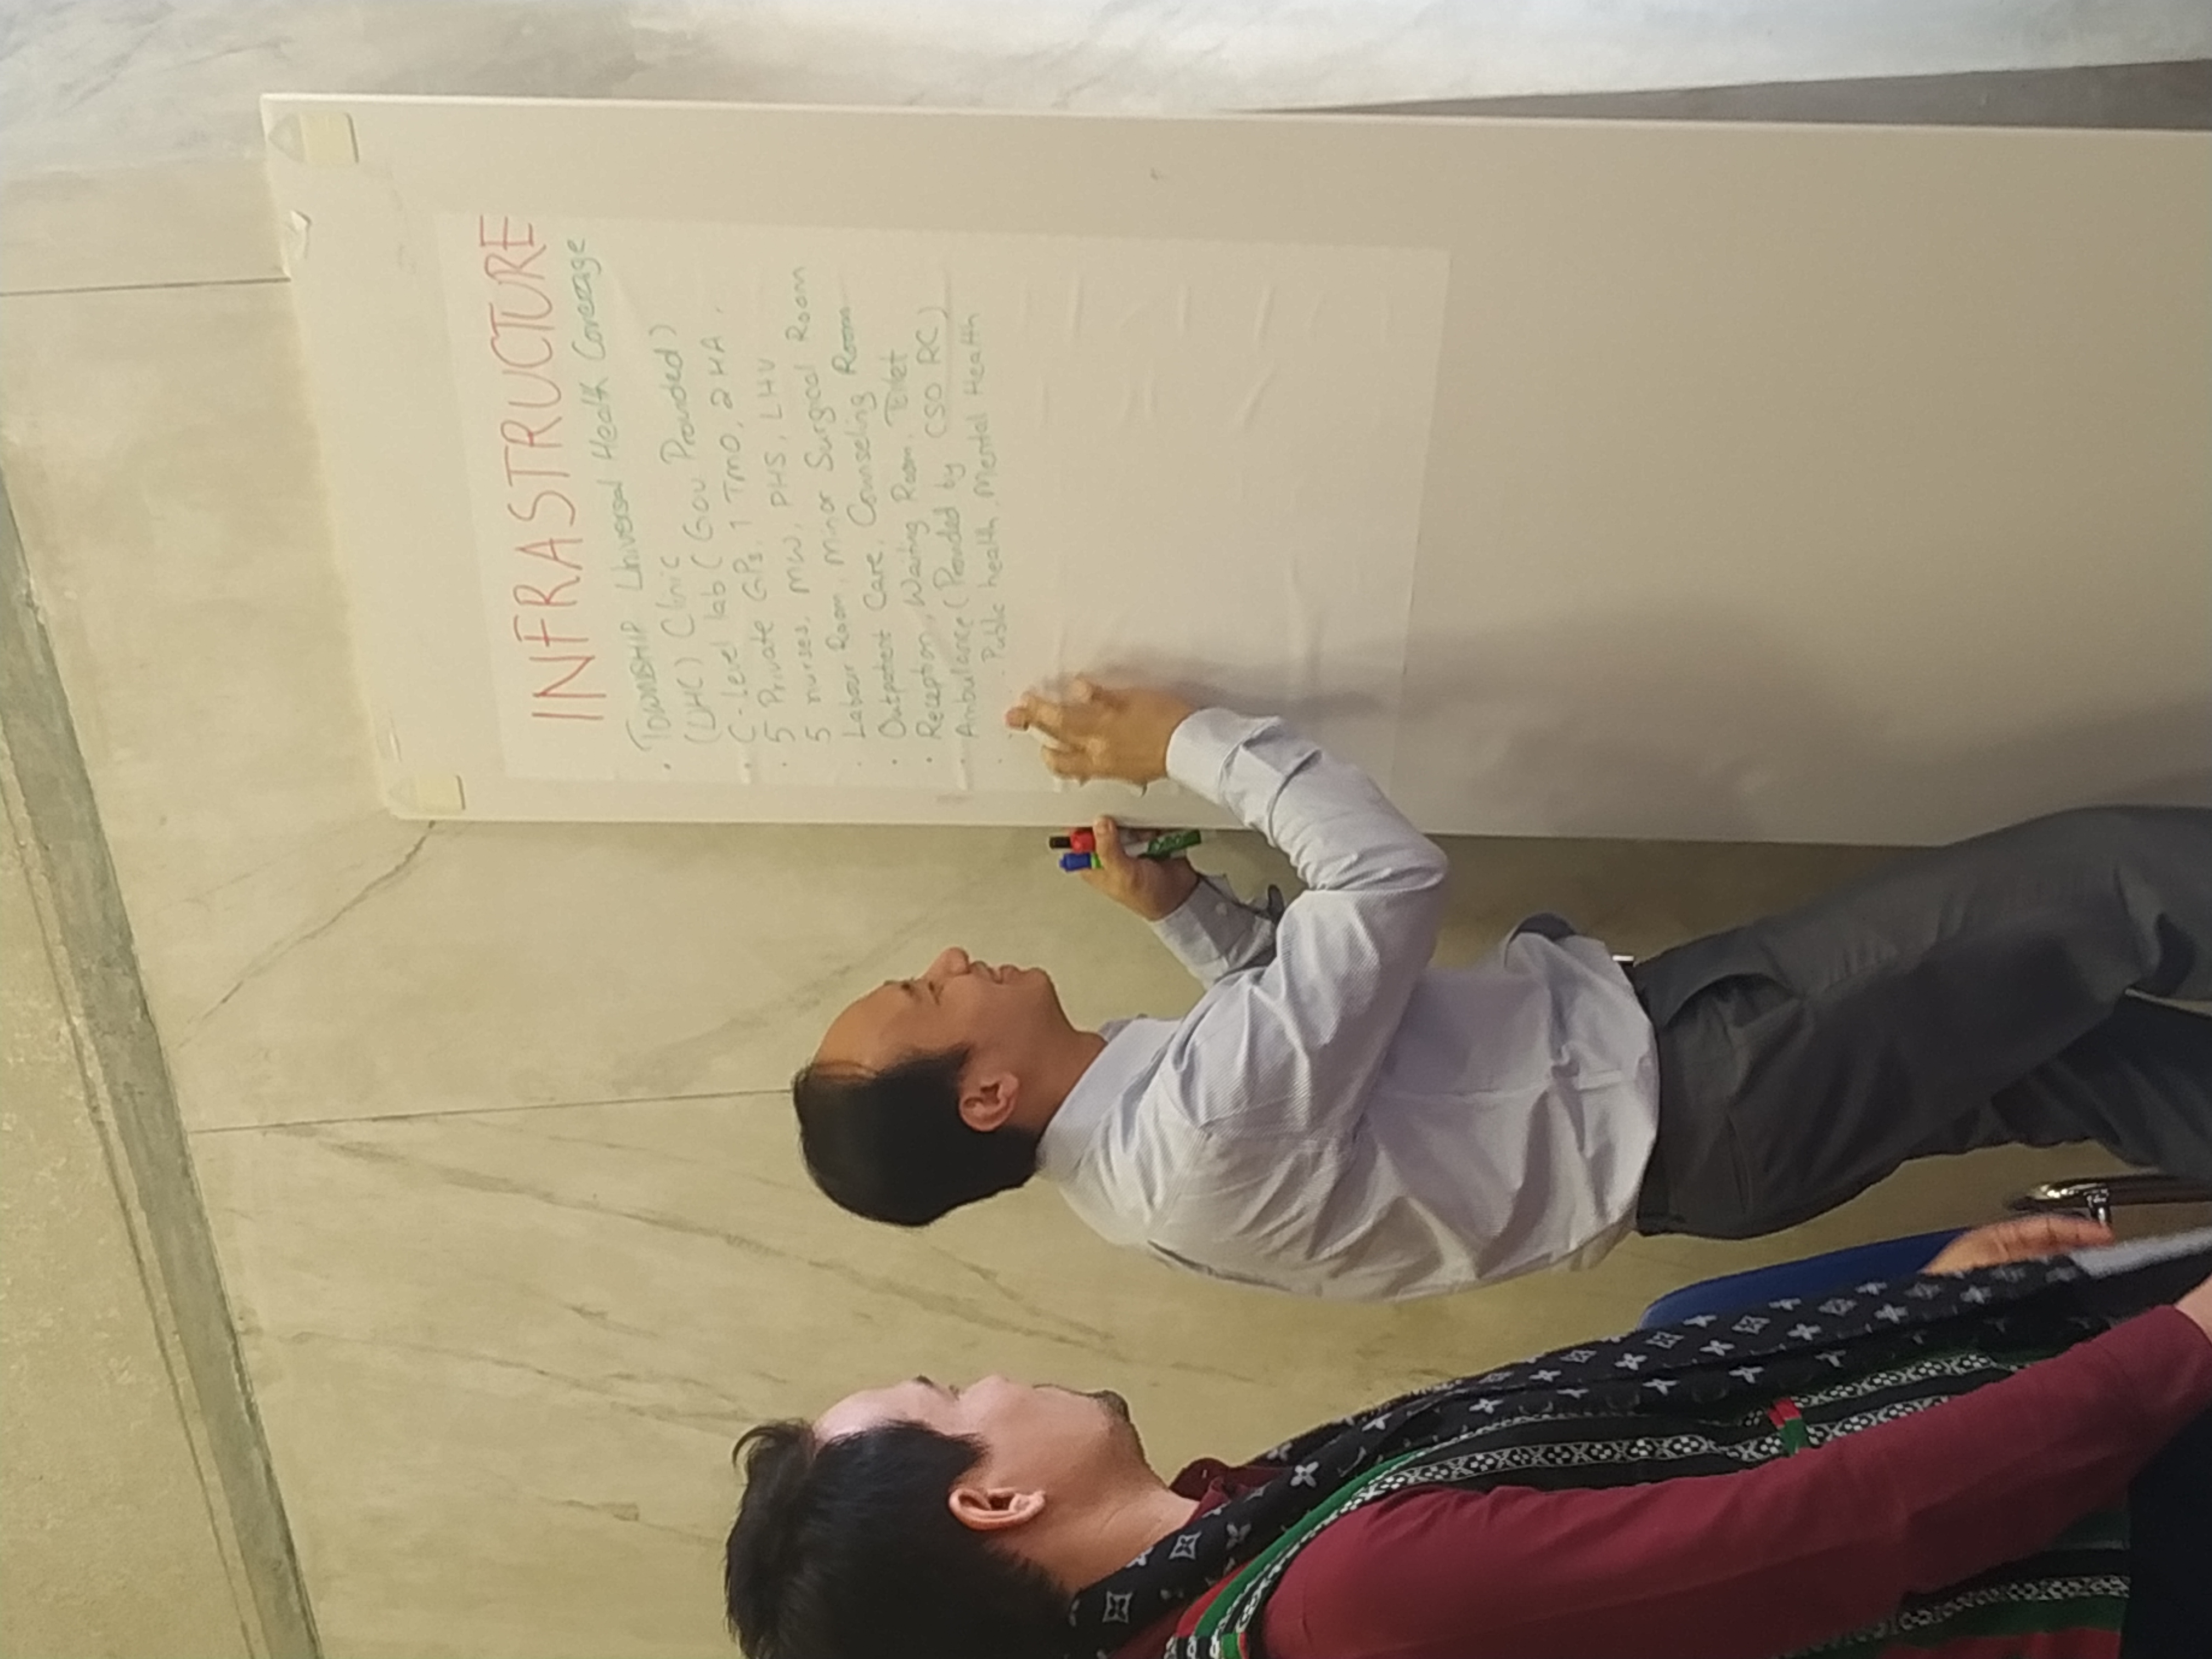 INFRASTRUCTURE
• TOWNSHIP Universal Health Coverage
(UHC) Clinic
• C-Level lab (Gov Provided)
• 5 Private GPs, 1 TMO, 2 HA,
5 nurses, MW, PHS, LHV
• Labour Room, Minor Surgical Room
• Outpatient Care, Counseling Room
• Reception, Waiting Room, Toilet
• Ambulance (Provided by CSO RC)
• Public health, Mental Health